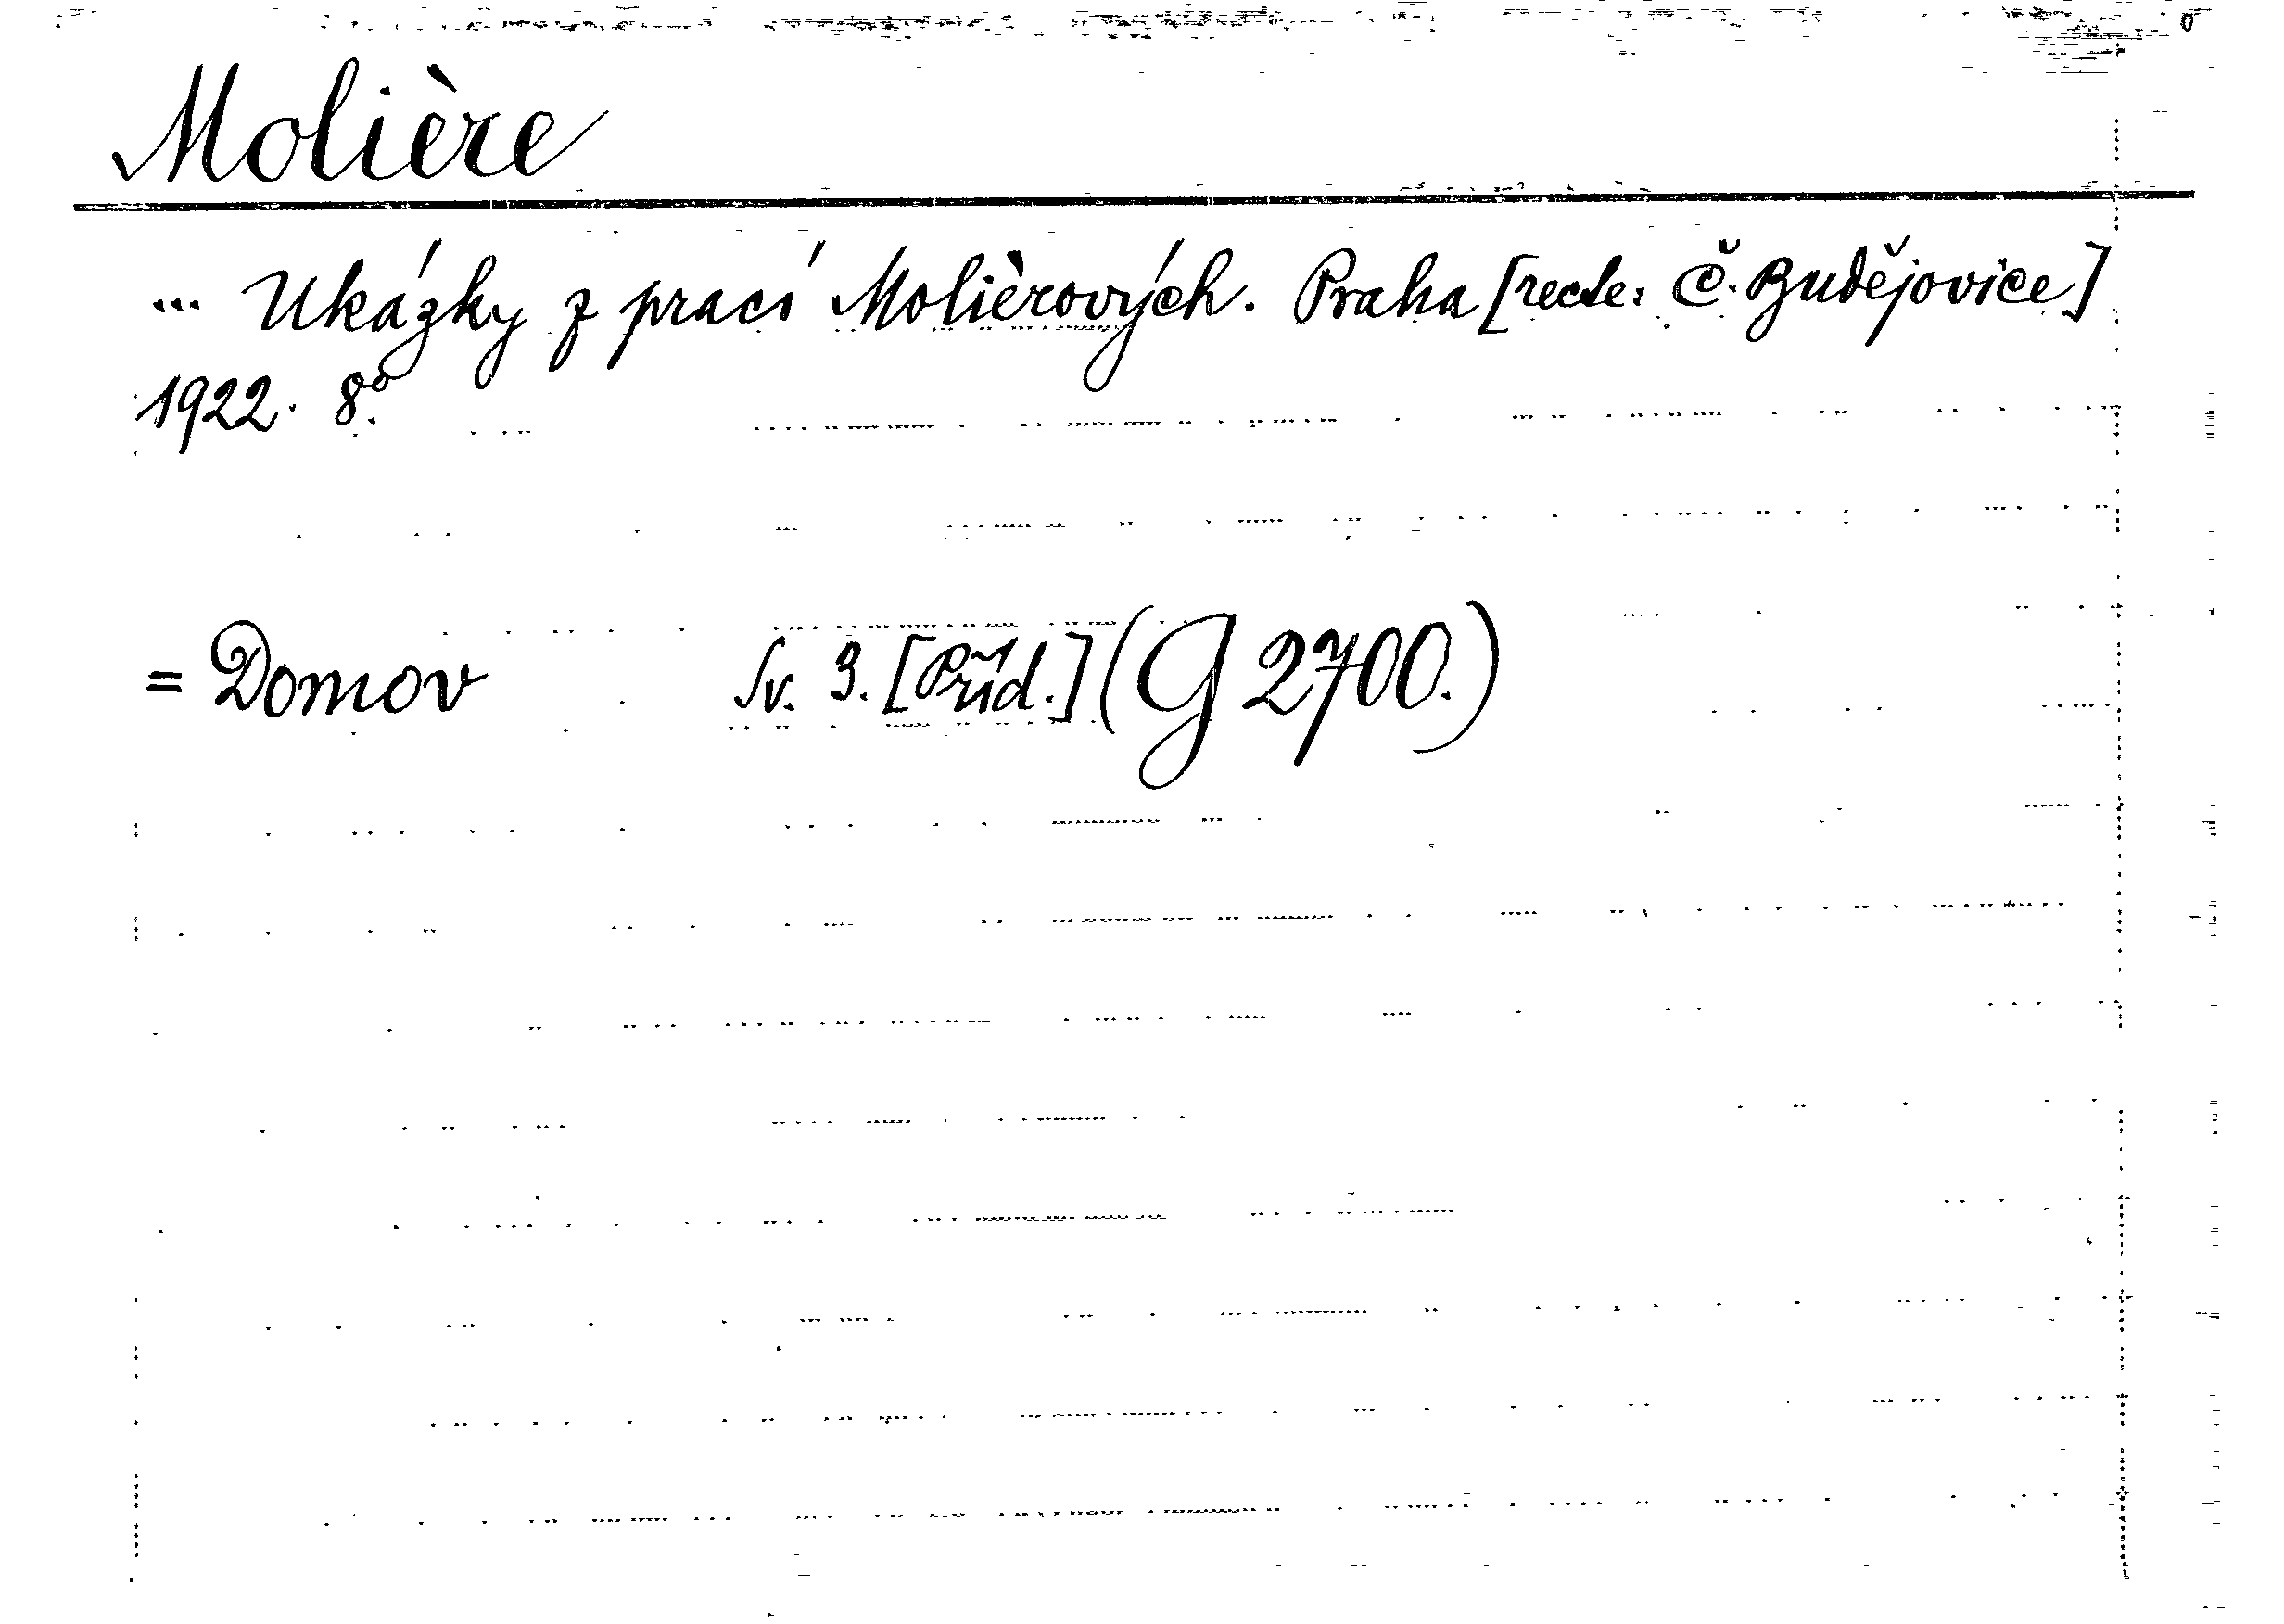 Molière
... Ukázky z prací Molièrových. Praha [recte: Č. Budějovice]
1922. 8°.
= Domov Sv. 3. [Příd.] (G 2700.)